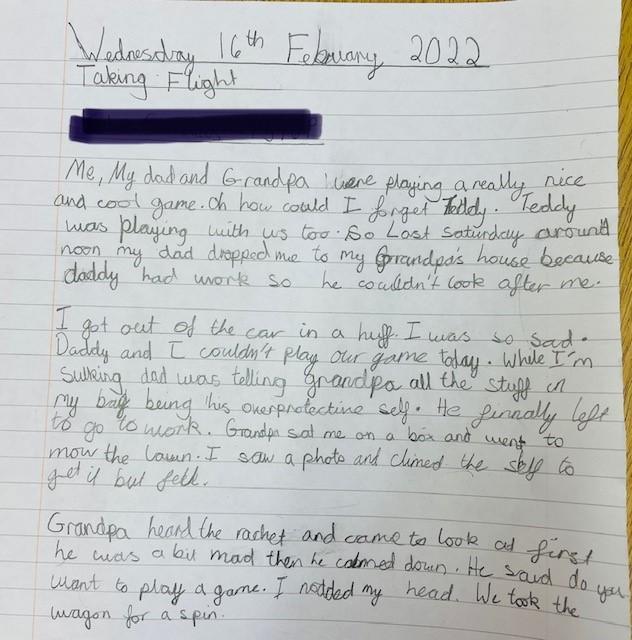 Wednesday 16th Febuary 2022
Taking Flight
Me, My dad and Grandpa were playing a really nice
and cool game. Oh how could I forget Teddy. Teddy
was playing with us too. So Last saturday around
noon my dad dropped me to my Grandpa's house because
daddy had work so he couldn't look after me.
I got out of the car in a huff. I was so sad.
Daddy and I couldn't play our game today. While I'm
Sulking, dad was telling grandpa all the stuff in
my bag being his overprotective self. He finnally left
to go to work. Grandpa sat me on a box and went to
mow the lawn. I saw a photo and climed the self to
get it but fell.
Grandpa heard the racket and came to look at first
he was a bit mad then he calmed down. He said do you
want to play a game. I nodded my head. We took the
wagon for a spin.